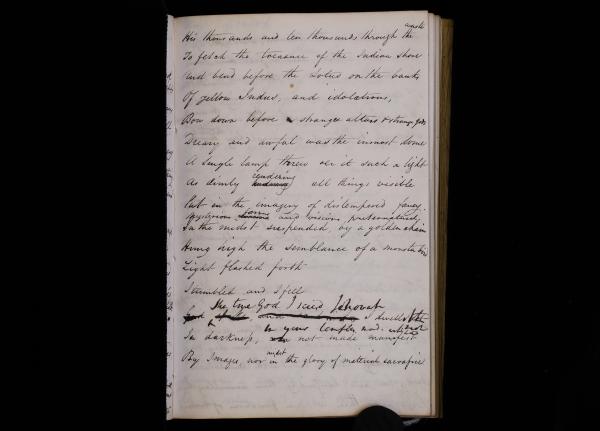 His thousands and ten thousands through the waste
To fetch the treasure of the Indian shore
And bend before the Lotus on the banks
Of yellow Indus, and idolatrous,
Bow down before a stranger altars & strange gods
Dreary and awful was the inmost dome
A Single lamp threw o'er it such a light
As dimly rendering all things visible
but in the imagery of distempered fancy,
Mysterious forms and visions preternaturally,
In the midst suspended, by a golden chain
Hung high the semblance of a monstrous
Light flashed forth
I stumbled and I fell
The true God I said Jehovah
dwells
In darkness, not made manifest
By Images, nor midst in the glory of material sacrifice